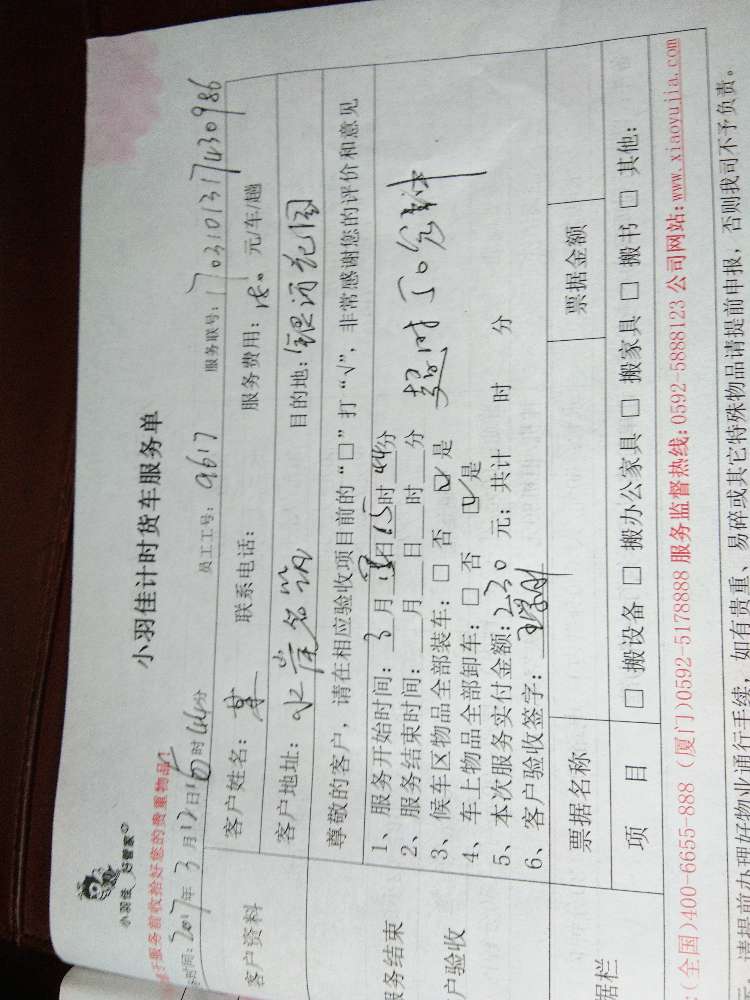 小羽佳 好管家
小羽佳计时货车服务单
于服务前收拾好您的贵重物品!
时间: 2017年3月12日15时44分 员工工号: 9617 服务联号: 1703101317430986
客户资料
客户姓名: 联系电话: 服务费用: 180 元/车/趟
客户地址: 水岸名筑 目的地: 花园
尊敬的客户，请在相应验收项目前的“□”打“√”，非常感谢您的评价和意见
服务结束
户验收
1、服务开始时间: 3月日15时44分
2、服务结束时间: 月日时分 超时50分钟
3、候车区物品全部装车: □ 否 ☑ 是
4、车上物品全部卸车: □ 否 ☑ 是
5、本次服务实付金额: 230 元; 共计 时 分
6、客户验收签字:
据栏
票据名称 票据金额
项 目 □ 搬设备 □ 搬办公家具 □ 搬家具 □ 搬书 □ 其他:
:(全国)400-6655-888 (厦门)0592-5178888 服务监督热线:0592-5888123 公司网站:www.xiaoyujia.com
请提前办理好物业通行手续，如有贵重、易碎或其它特殊物品请提前申报，否则我司不予负责。